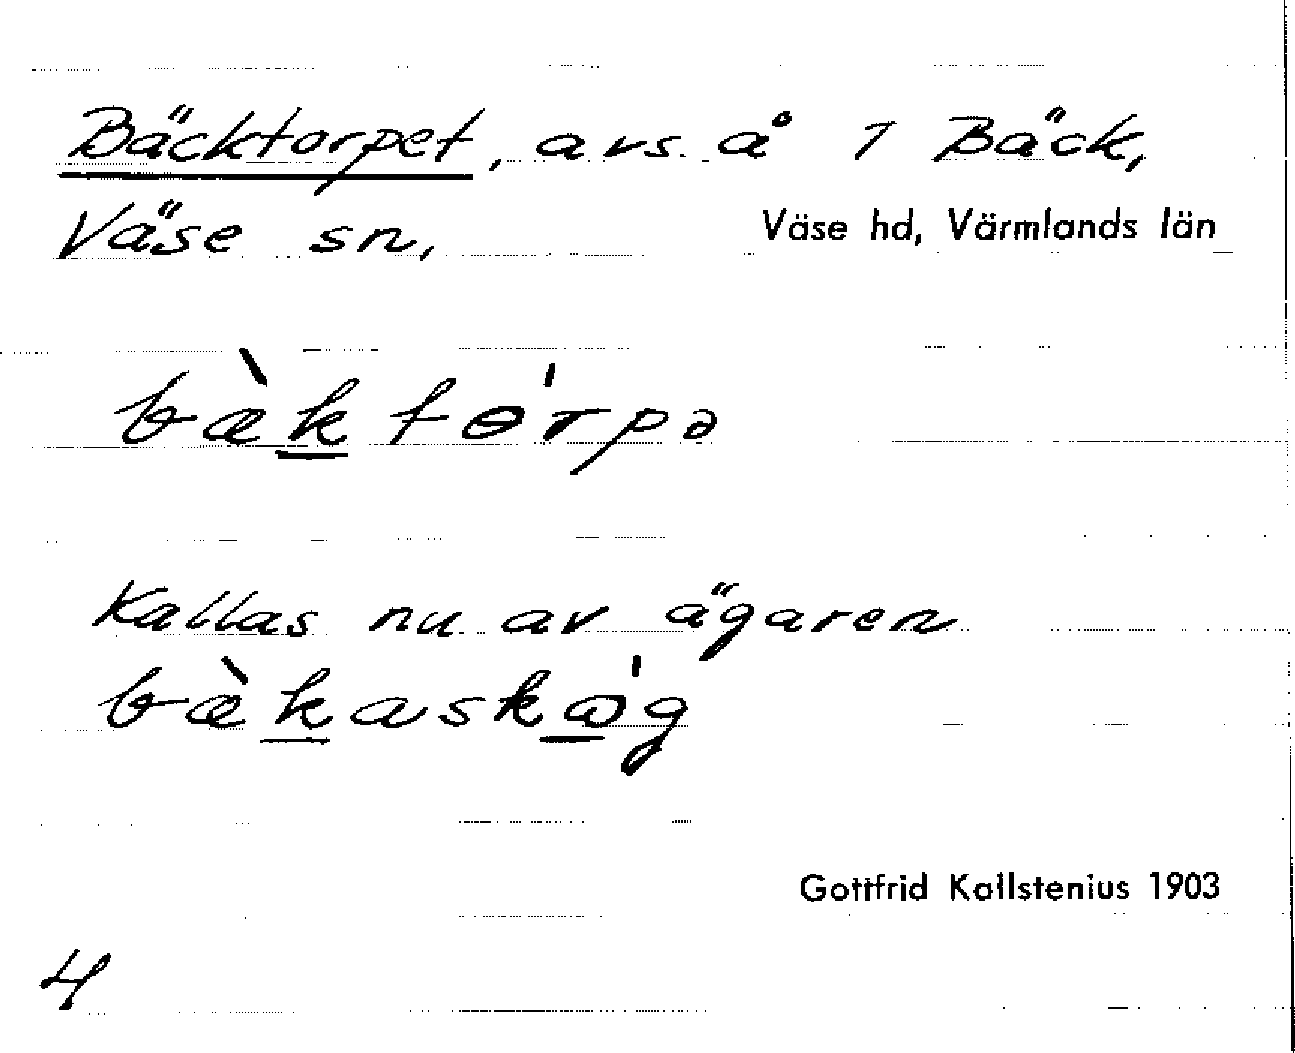 Bäcktorpet, avs. å 1 Bäck,
Väse sn, Väse hd, Värmlands län
bæ̀ktɵ́rpə
Kallas nu av ägaren
bæ̀kaskώg
Gottfrid Kallstenius 1903
4